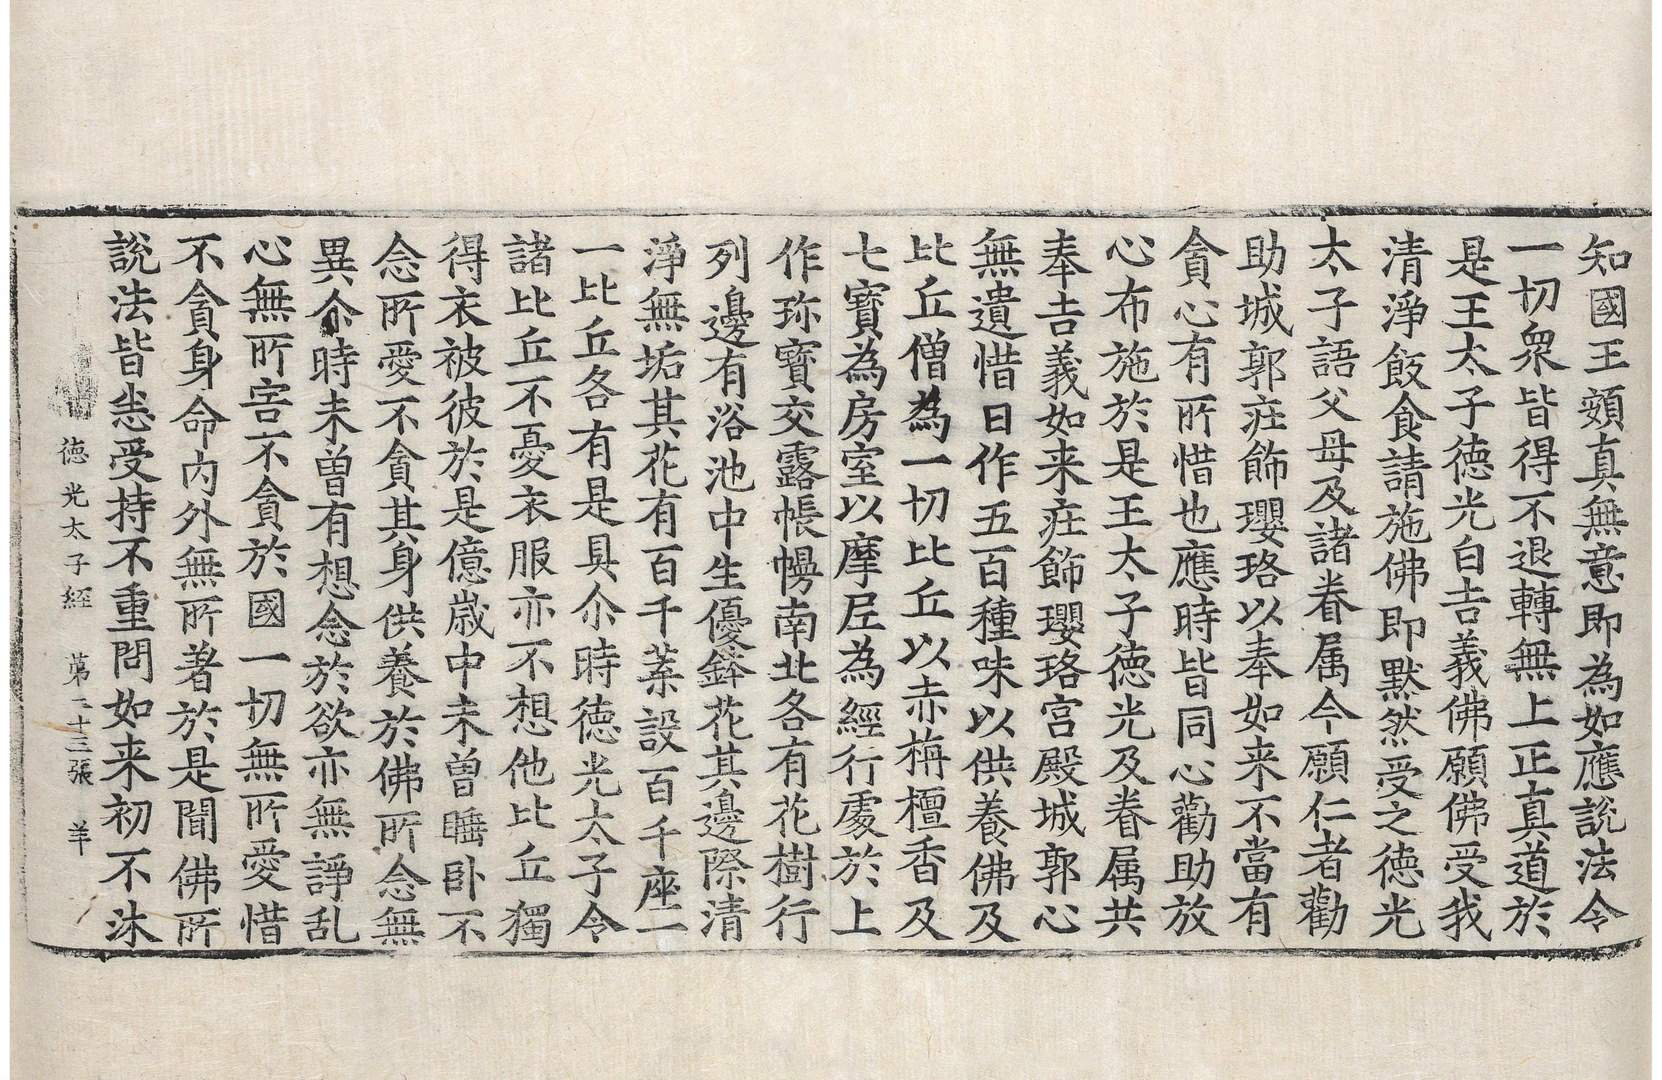 知國王頞真無意即為如應說法令
一切衆皆得不退轉無上正真道於
是王太子德光白吉義佛願佛受我
清淨飯食請施佛即默然受之德光
太子語父母及諸眷属今願仁者勸
助城郭疘飾瓔珞以奉如来不當有
貪心有所惜也應時皆同心勸助放
心布施於是王太子德光及眷属共
奉吉義如来疘飾瓔珞宮殿城郭心
無遺惜日作五百種味以供養佛及
比丘僧為一切比丘以赤栴檀香及
七寶為房室以摩尼為經行處於上
作珎寶交露帳幔南北各有花樹行
列邊有浴池中生優鉢花其邊際清
淨無垢其花有百千葉設百千座一
一比丘各有是具尒時德光太子令
諸比丘不憂衣服亦不想他比丘獨
得衣被彼於是億歲中未曽睡卧不
念所愛不貪其身供養於佛所念無
異尒時未曽有想念於欲亦無諍乱
心無所害不貪於國一切無所愛惜
不貪身命内外無所著於是聞佛所
說法皆悉受持不重問如来初不沐
德光太子經 第二十三張 羊